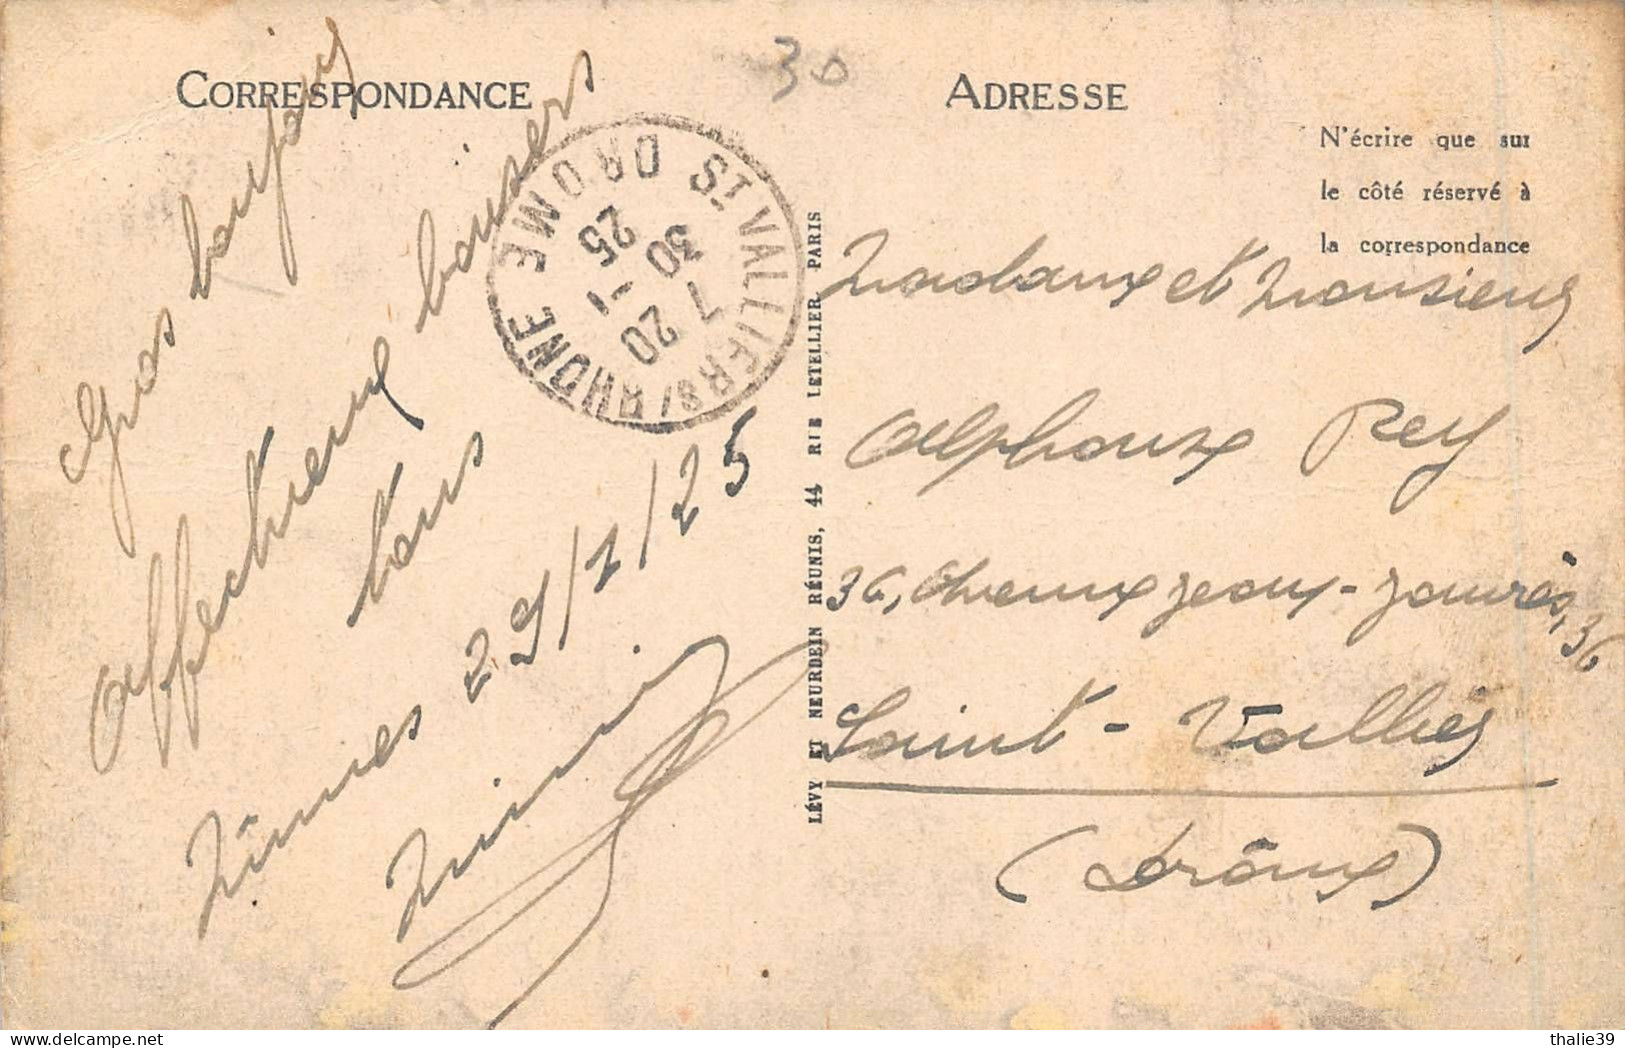 CORRESPONDANCE
30
ADRESSE
N'écrire que sur
le côté réservé à
la correspondance
Gros toujours
Affectueux baisers
tous
Nîmes 29/1/25
ST VALLIER S/RHONE DROME
7 20
30 -1
25
LÉVY ET NEURDEIN RÉUNIS, 44 RUE LETELLIER PARIS
Madame et Monsieur
Alphonse Rey
36, Avenue Jean-Jaurès, 36
Saint-Vallier
(Drôme)
thalie39